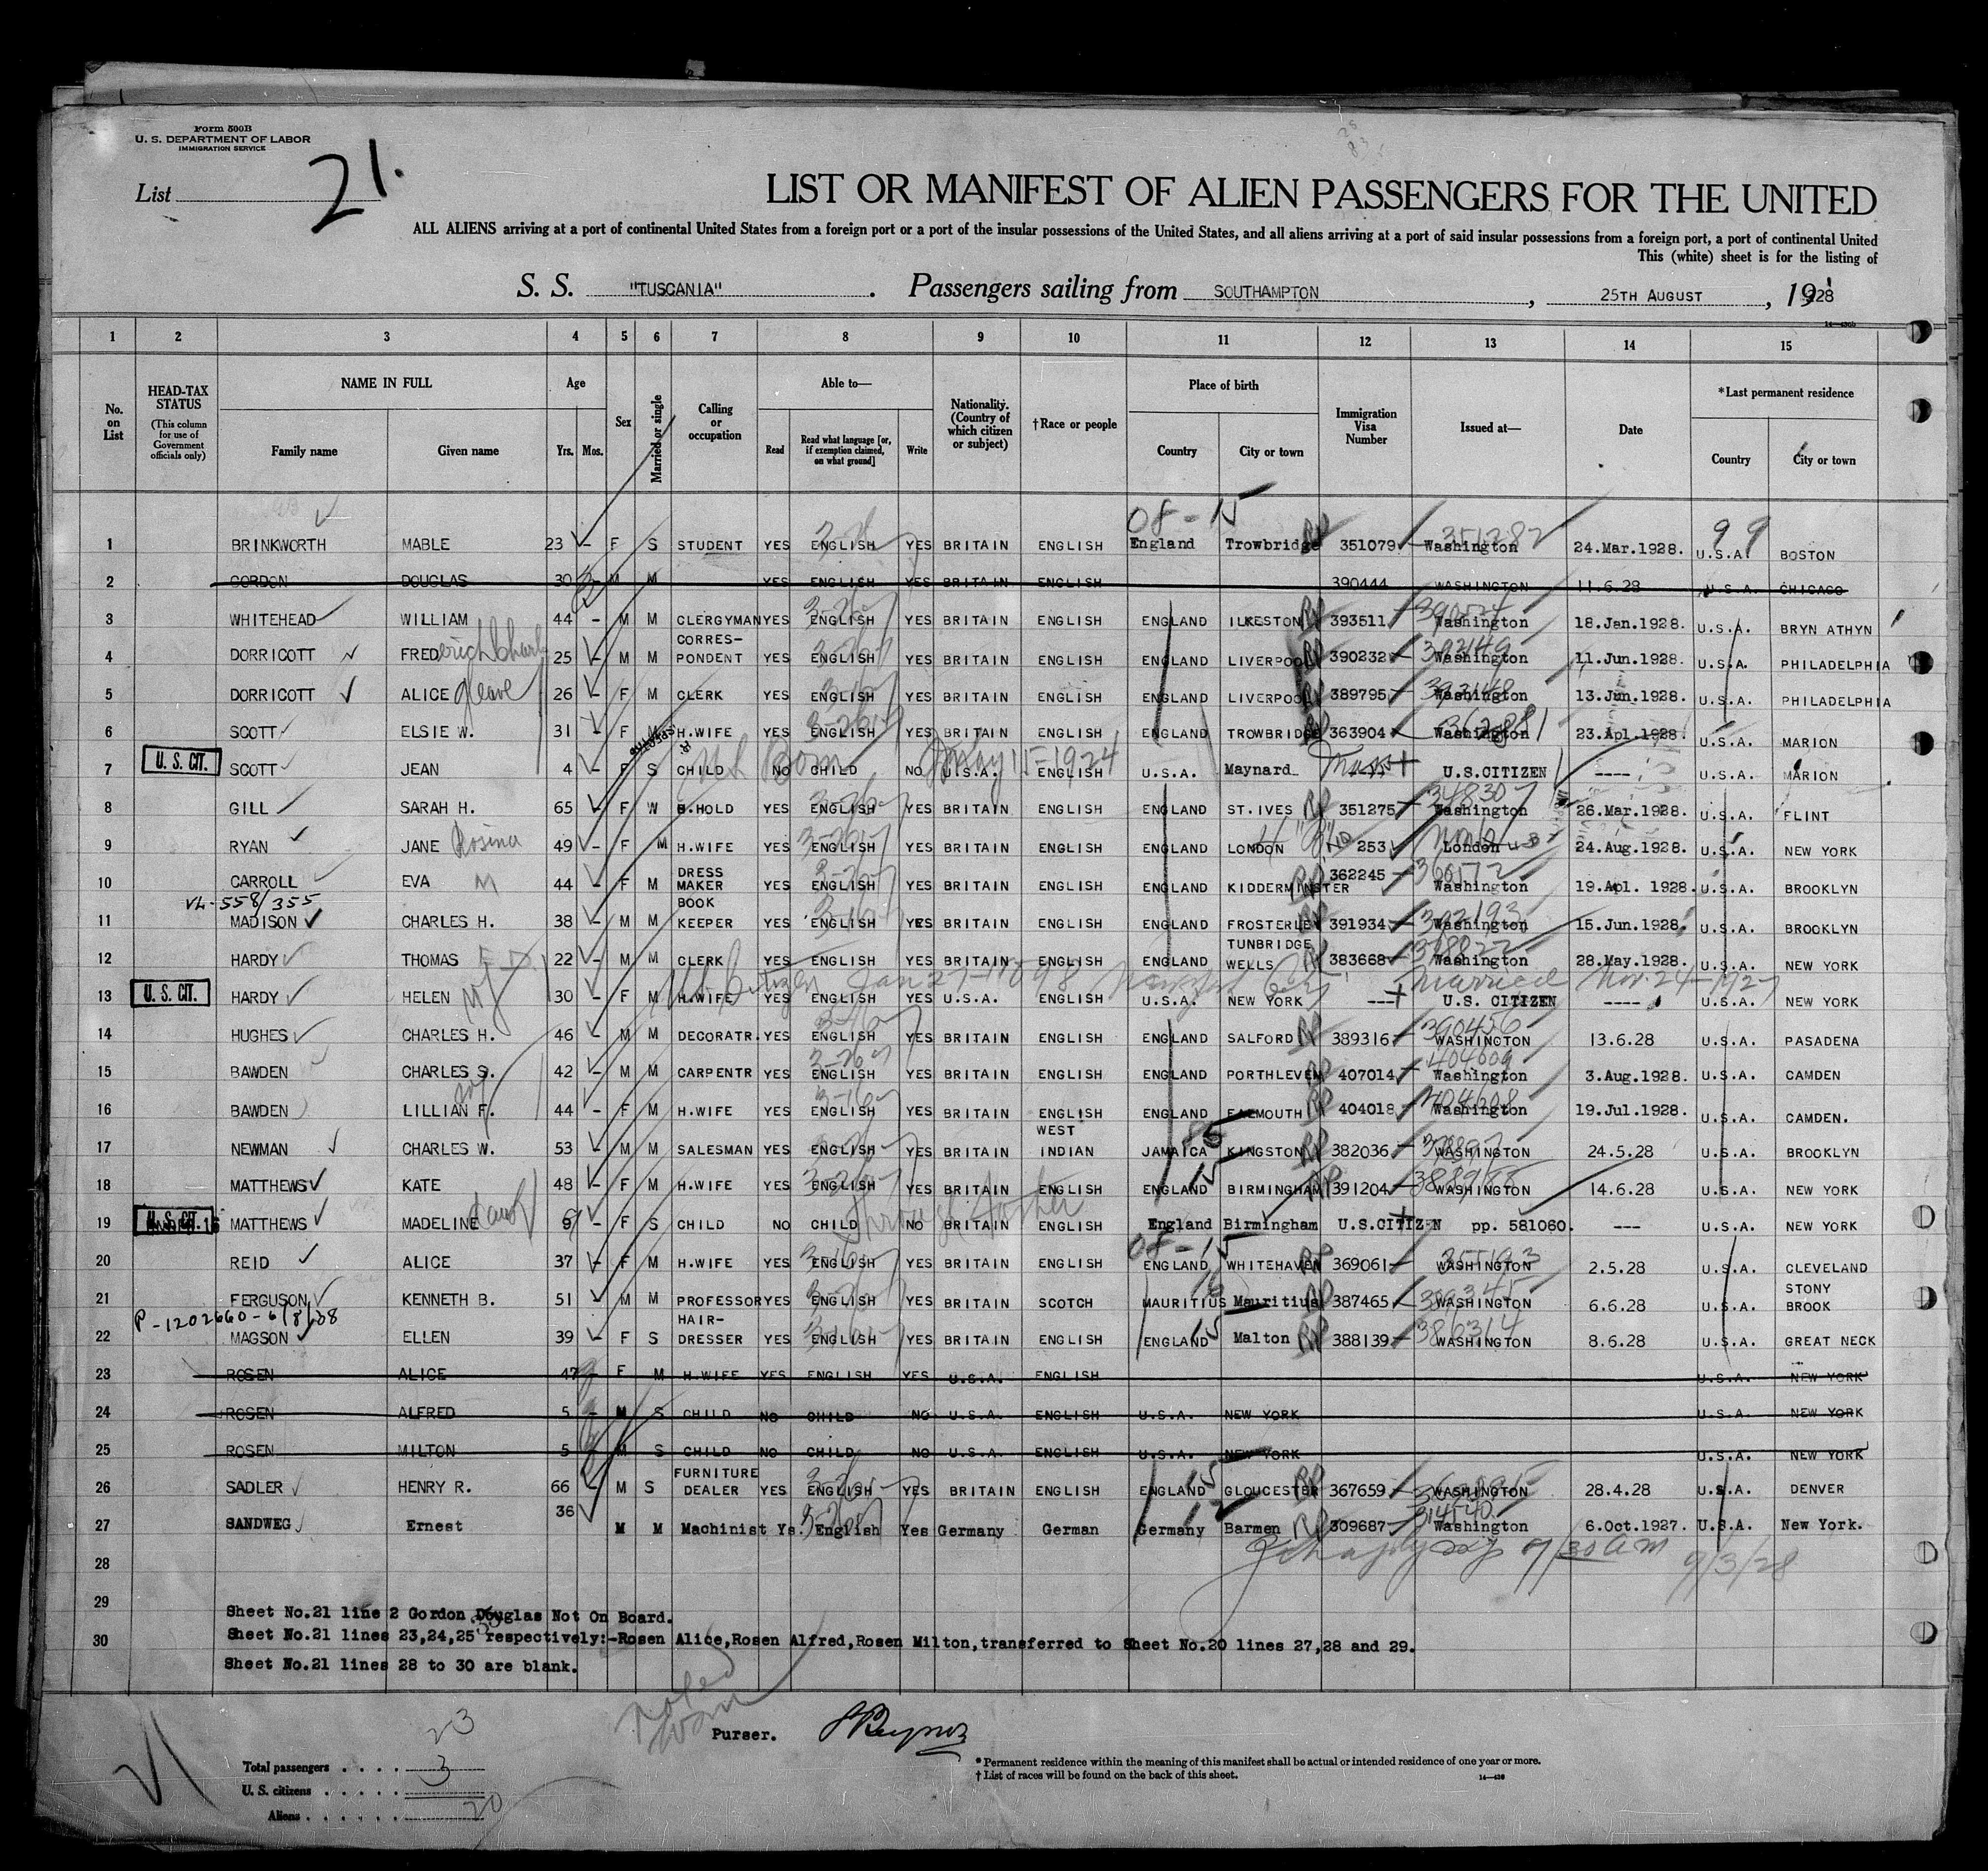 Form 500B
U. S. DEPARTMENT OF LABOR
IMMIGRATION SERVICE
List 21.
LIST OR MANIFEST OF ALIEN PASSENGERS FOR THE UNITED
ALL ALIENS arriving at a port of continental United States from a foreign port or a port of the insular possessions of the United States, and all aliens arriving at a port of said insular possessions from a foreign port, a port of continental United
This (white) sheet is for the listing of
S. S. "TUSCANIA". Passengers sailing from SOUTHAMPTON, 25TH AUGUST, 1928
1 2 3 4 5 6 7 8 9 10 11 12 13 14 15
No. on List
HEAD-TAX STATUS (This column for use of Government officials only)
NAME IN FULL Family name Given name
Age Yrs. Mos.
Sex
Married or single
Calling or occupation
Able to— Read Read what language [or, if exemption claimed, on what ground] Write
Nationality. (Country of which citizen or subject)
†Race or people
Place of birth Country City or town
Immigration Visa Number
Issued at—
Date
*Last permanent residence Country City or town
08-15
1 BRINKWORTH MABLE 23 - F S STUDENT YES ENGLISH YES BRITAIN ENGLISH England Trowbridge 351079 Washington 351282 24.Mar.1928. U.S.A. 99 BOSTON
2 GORDON DOUGLAS 30 - M M YES ENGLISH YES BRITAIN ENGLISH 390444 WASHINGTON 11.6.28 U.S.A. CHICAGO
3 WHITEHEAD WILLIAM 44 - M M CLERGYMAN YES ENGLISH YES BRITAIN ENGLISH ENGLAND ILKESTON 393511 Washington 18.Jan.1928. U.S.A. BRYN ATHYN
4 DORRICOTT FRED 25 - M M CORRES-PONDENT YES ENGLISH YES BRITAIN ENGLISH ENGLAND LIVERPOOL 390232 Washington 392149 11.Jun.1928. U.S.A. PHILADELPHIA
5 DORRICOTT ALICE Gleave 26 - F M CLERK YES ENGLISH YES BRITAIN ENGLISH ENGLAND LIVERPOOL 389795 Washington 392148 13.Jun.1928. U.S.A. PHILADELPHIA
6 SCOTT ELSIE W. 31 - F M H.WIFE YES ENGLISH YES BRITAIN ENGLISH ENGLAND TROWBRIDGE 363904 Washington 362881 23.Apl.1928. U.S.A. MARION
7 U. S. CIT. SCOTT JEAN 4 - F S CHILD NO CHILD NO U.S.A. ENGLISH U.S.A. Maynard Mass U.S.CITIZEN ---- U.S.A. MARION
US Born May 15-1924
8 GILL SARAH H. 65 - F W H.HOLD YES ENGLISH YES BRITAIN ENGLISH ENGLAND ST.IVES 351275 Washington 26.Mar.1928. U.S.A. FLINT
9 RYAN JANE Rosina 49 - F M H.WIFE YES ENGLISH YES BRITAIN ENGLISH ENGLAND LONDON 253 London 24.Aug.1928. U.S.A. NEW YORK
10 CARROLL EVA M 44 - F M DRESS MAKER YES ENGLISH YES BRITAIN ENGLISH ENGLAND KIDDERMINSTER 362245 Washington 19.Apl. 1928. U.S.A. BROOKLYN
VL-558/355
11 MADISON CHARLES H. 38 - M M BOOK KEEPER YES ENGLISH YES BRITAIN ENGLISH ENGLAND FROSTERLEY 391934 Washington 392193 15.Jun.1928. U.S.A. BROOKLYN
12 HARDY THOMAS 22 - M M CLERK YES ENGLISH YES BRITAIN ENGLISH ENGLAND TUNBRIDGE WELLS 383668 Washington 28.May.1928. U.S.A. NEW YORK
US Citizen Jan 27-1898 New York City Married Nov. 24-1927
13 U. S. CIT. HARDY HELEN 30 - F M H.WIFE YES ENGLISH YES U.S.A. ENGLISH U.S.A. NEW YORK --- U.S. CITIZEN ---- U.S.A. NEW YORK
14 HUGHES CHARLES H. 46 - M M DECORATR. YES ENGLISH YES BRITAIN ENGLISH ENGLAND SALFORD 389316 WASHINGTON 390456 13.6.28 U.S.A. PASADENA
15 BAWDEN CHARLES S. 42 - M M CARPENTR YES ENGLISH YES BRITAIN ENGLISH ENGLAND PORTHLEVEN 407014 Washington 404609 3.Aug.1928. U.S.A. CAMDEN
16 BAWDEN LILLIAN F. 44 - F M H.WIFE YES ENGLISH YES BRITAIN ENGLISH ENGLAND FALMOUTH 404018 Washington 404608 19.Jul.1928. U.S.A. CAMDEN.
17 NEWMAN CHARLES W. 53 - M M SALESMAN YES ENGLISH YES BRITAIN WEST INDIAN JAMAICA KINGSTON 382036 WASHINGTON 24.5.28 U.S.A. BROOKLYN
18 MATTHEWS KATE 48 - F M H.WIFE YES ENGLISH YES BRITAIN ENGLISH ENGLAND BIRMINGHAM 391204 WASHINGTON 14.6.28 U.S.A. NEW YORK
19 U. S. CIT. MATTHEWS MADELINE 9 - F S CHILD NO CHILD NO BRITAIN ENGLISH England Birmingham U.S.CITIZEN pp. 581060. --- U.S.A. NEW YORK
08-15
20 REID ALICE 37 - F M H.WIFE YES ENGLISH YES BRITAIN ENGLISH ENGLAND WHITEHAVEN 369061 WASHINGTON 2.5.28 U.S.A. CLEVELAND
21 FERGUSON KENNETH B. 51 - M M PROFESSOR YES ENGLISH YES BRITAIN SCOTCH MAURITIUS Mauritius 387465 WASHINGTON 6.6.28 U.S.A. STONY BROOK
P-1202660-6/8/38
22 MAGSON ELLEN 39 - F S HAIR-DRESSER YES ENGLISH YES BRITAIN ENGLISH ENGLAND Malton 388139 WASHINGTON 386314 8.6.28 U.S.A. GREAT NECK
23 ROSEN ALICE 47 F M H.WIFE YES ENGLISH YES U.S.A. ENGLISH U.S.A. NEW YORK
24 ROSEN ALFRED 5 - M S CHILD NO CHILD NO U.S.A. ENGLISH U.S.A. NEW YORK U.S.A. NEW YORK
25 ROSEN MILTON 5 M S CHILD NO CHILD NO U.S.A. ENGLISH U.S.A. NEW YORK U.S.A. NEW YORK
26 SADLER HENRY R. 66 - M S FURNITURE DEALER YES ENGLISH YES BRITAIN ENGLISH ENGLAND GLOUCESTER 367659 WASHINGTON 28.4.28 U.S.A. DENVER
27 SANDWEG Ernest 36 M M Machinist Ys. English Yes Germany German Germany Barmen 309687 Washington 314540 6.Oct.1927. U.S.A. New York.
28
9/3/28
29
Sheet No.21 line 2 Gordon Douglas Not On Board.
30
Sheet No.21 lines 23,24,25 respectively:-Rosen Alice,Rosen Alfred,Rosen Milton,transferred to Sheet No.20 lines 27,28 and 29.
Sheet No.21 lines 28 to 30 are blank.
Purser.
Total passengers . . . . 23
U. S. citizens . . . . . 3
Aliens . . . . . . 20
* Permanent residence within the meaning of this manifest shall be actual or intended residence of one year or more.
† List of races will be found on the back of this sheet.